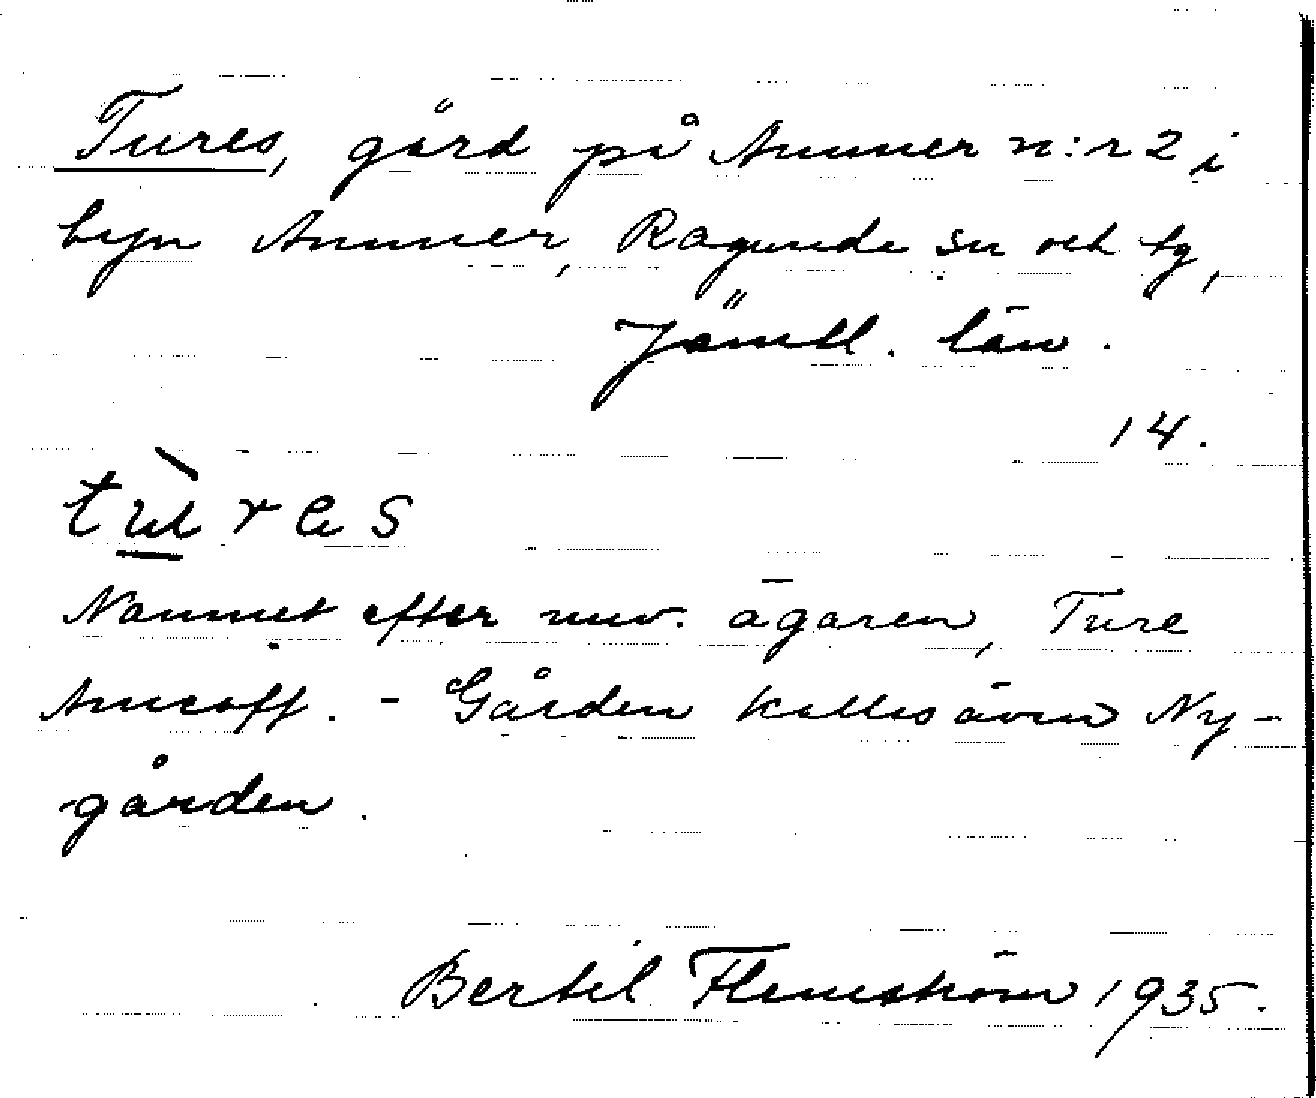 Tures, gård på Ammer n:r 2 i
byn Ammer, Ragunda sn och tg,
Jämtl. län.
14.
tùrɐs
Namnet efter nuv. ägaren, Ture
Amcoff. - Gården kallas även Ny-
gården.
Bertil Flemström 1935.